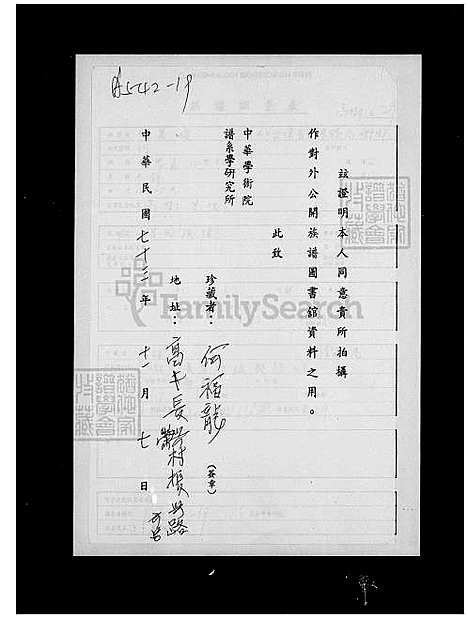 A542-19
茲證明本人同意貴所拍攝
作對外公開族譜圖書館資料之用。
此致
中華學術院
譜系學研究所
珍藏者：何福龍（簽章）
地址：高 長 村振興路
中華民國七十三年十一月七日
FamilySearch
譜學會
收藏